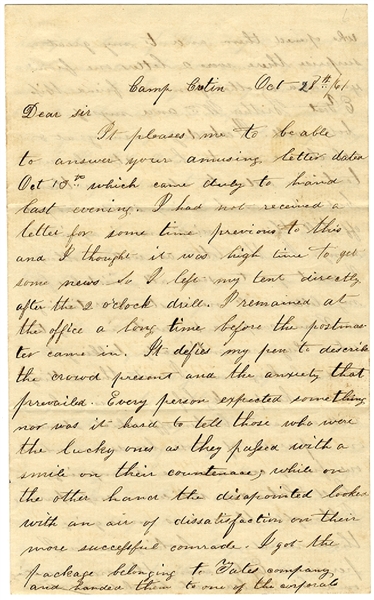 Camp Cutin Oct 28th /61
Dear sir
It pleases me to be able
to answer your amusing letter dated
Oct which came duty to hand
last evening. I had not received a
letter for some time previous to this
and I thought it was high time to get
some news. So I left my tent directly
after the 2 o'clock drill. I remained at
the office a long time before the postmas
ter came in. It defies my pen to describe
the crowd present and the anxiety that
prevailed. Every person expected something
nor was it hard to tell those who were
the lucky ones as they passed with a
smile on their countenace, while on
the other hand the disapointed looked
with an air of dissatisfaction on their
more successful comrade. I got the
package belonging to Tates company
and handed them to one of the corporals